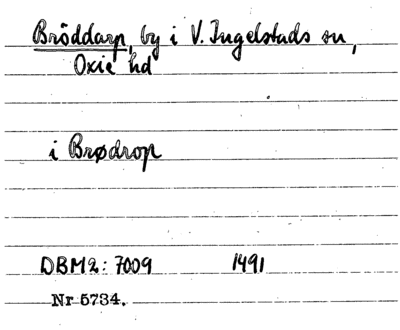 Bröddarp, by i V. Ingelstads sn,
Oxie hd
i Brødrop
DBM2: 7009 1491
Nr 5734.